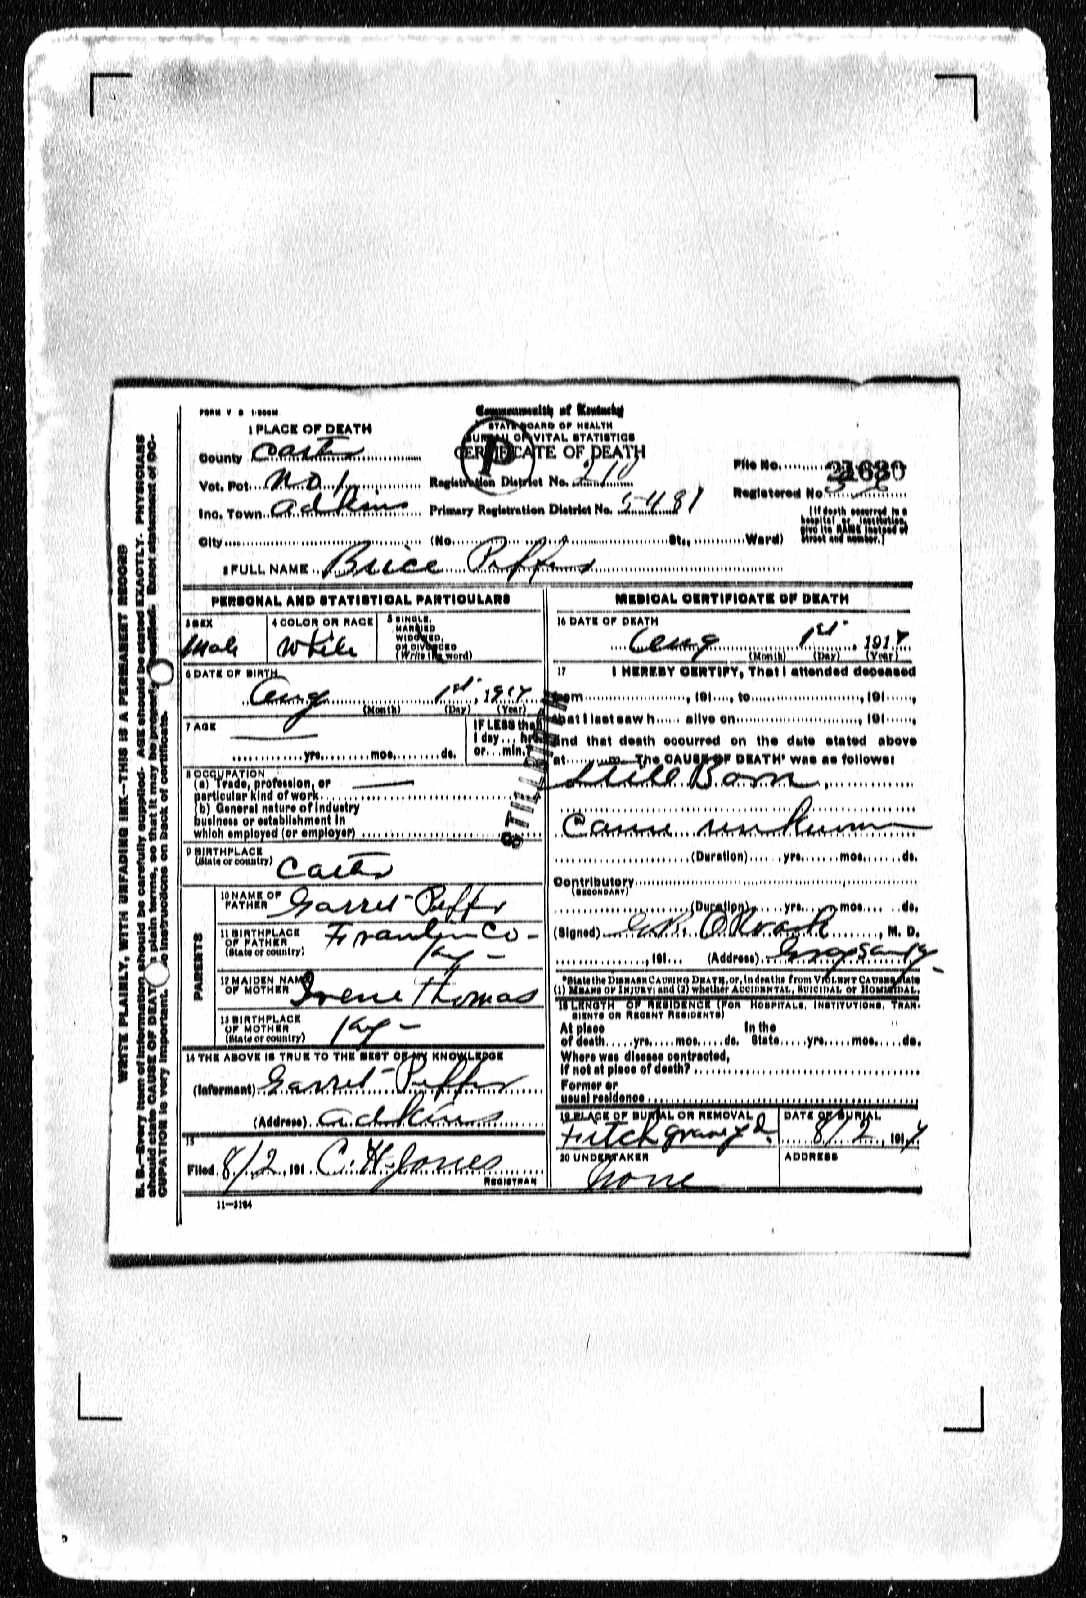 FORM V S 1-200M
Commonwealth of Kentucky
STATE BOARD OF HEALTH
BUREAU OF VITAL STATISTICS
CERTIFICATE OF DEATH
P
1 PLACE OF DEATH
County Carter
Vot. Pct. No. 1
Inc. Town Adkins
City (No. St., Ward)
Registration District No. 210
Primary Registration District No. 5481
File No. 21630
Registered No.
(If death occurred in a
hospital or institution,
give its NAME instead of
street and number.)
2 FULL NAME Brice Peffer
PERSONAL AND STATISTICAL PARTICULARS
3 SEX
Male
4 COLOR OR RACE
White
5 SINGLE,
MARRIED
WIDOWED,
OR DIVORCED
(Write the word)
6 DATE OF BIRTH
Aug 1st, 1917
(Month) (Day) (Year)
7 AGE
yrs. mos. ds.
IF LESS than
1 day ... hrs.
or ... min.?
STILLBIRTH
8 OCCUPATION
(a) Trade, profession, or
particular kind of work
(b) General nature of industry
business or establishment in
which employed (or employer)
9 BIRTHPLACE
(State or country)
Carter
PARENTS
10 NAME OF
FATHER
Garret Peffer
11 BIRTHPLACE
OF FATHER
(State or country)
Franklin Co -
Ky -
12 MAIDEN NAME
OF MOTHER
Irene Thomas
13 BIRTHPLACE
OF MOTHER
(State or country)
Ky -
14 THE ABOVE IS TRUE TO THE BEST OF MY KNOWLEDGE
(Informant) Garret Peffer
(Address) Adkins
15
Filed 8/2, 191 C. H. Jones
REGISTRAR
11-3184
MEDICAL CERTIFICATE OF DEATH
16 DATE OF DEATH
Aug 1st, 1917
(Month) (Day) (Year)
17 I HEREBY CERTIFY, That I attended deceased
from , 191 , to , 191 ,
that I last saw h alive on , 191 ,
and that death occurred on the date stated above
at m. The CAUSE OF DEATH* was as follows:
Still Born
Cause unknown
(Duration) yrs. mos. ds.
Contributory
(SECONDARY)
(Duration) yrs. mos. ds.
(Signed) G. B. O'Roark, M. D.
, 191 (Address) Grayson Ky
*State the DISEASE CAUSING DEATH, or, in deaths from VIOLENT CAUSES, state
(1) MEANS OF INJURY; and (2) whether ACCIDENTAL, SUICIDAL or HOMICIDAL.
18 LENGTH OF RESIDENCE (FOR HOSPITALS, INSTITUTIONS, TRAN-
SIENTS OR RECENT RESIDENTS)
At place In the
of death yrs. mos. ds. State yrs. mos. ds.
Where was disease contracted,
if not at place of death?
Former or
usual residence
19 PLACE OF BURIAL OR REMOVAL
Fitch graveyd.
DATE OF BURIAL
8/2, 1917
20 UNDERTAKER
None
ADDRESS
WRITE PLAINLY, WITH UNFADING INK--THIS IS A PERMANENT RECORD
N. B.--Every item of information should be carefully supplied. AGE should be stated EXACTLY. PHYSICIANS
should state CAUSE OF DEATH in plain terms, so that it may be properly classified. Exact statement of OC-
CUPATION is very important. See instructions on back of certificate.